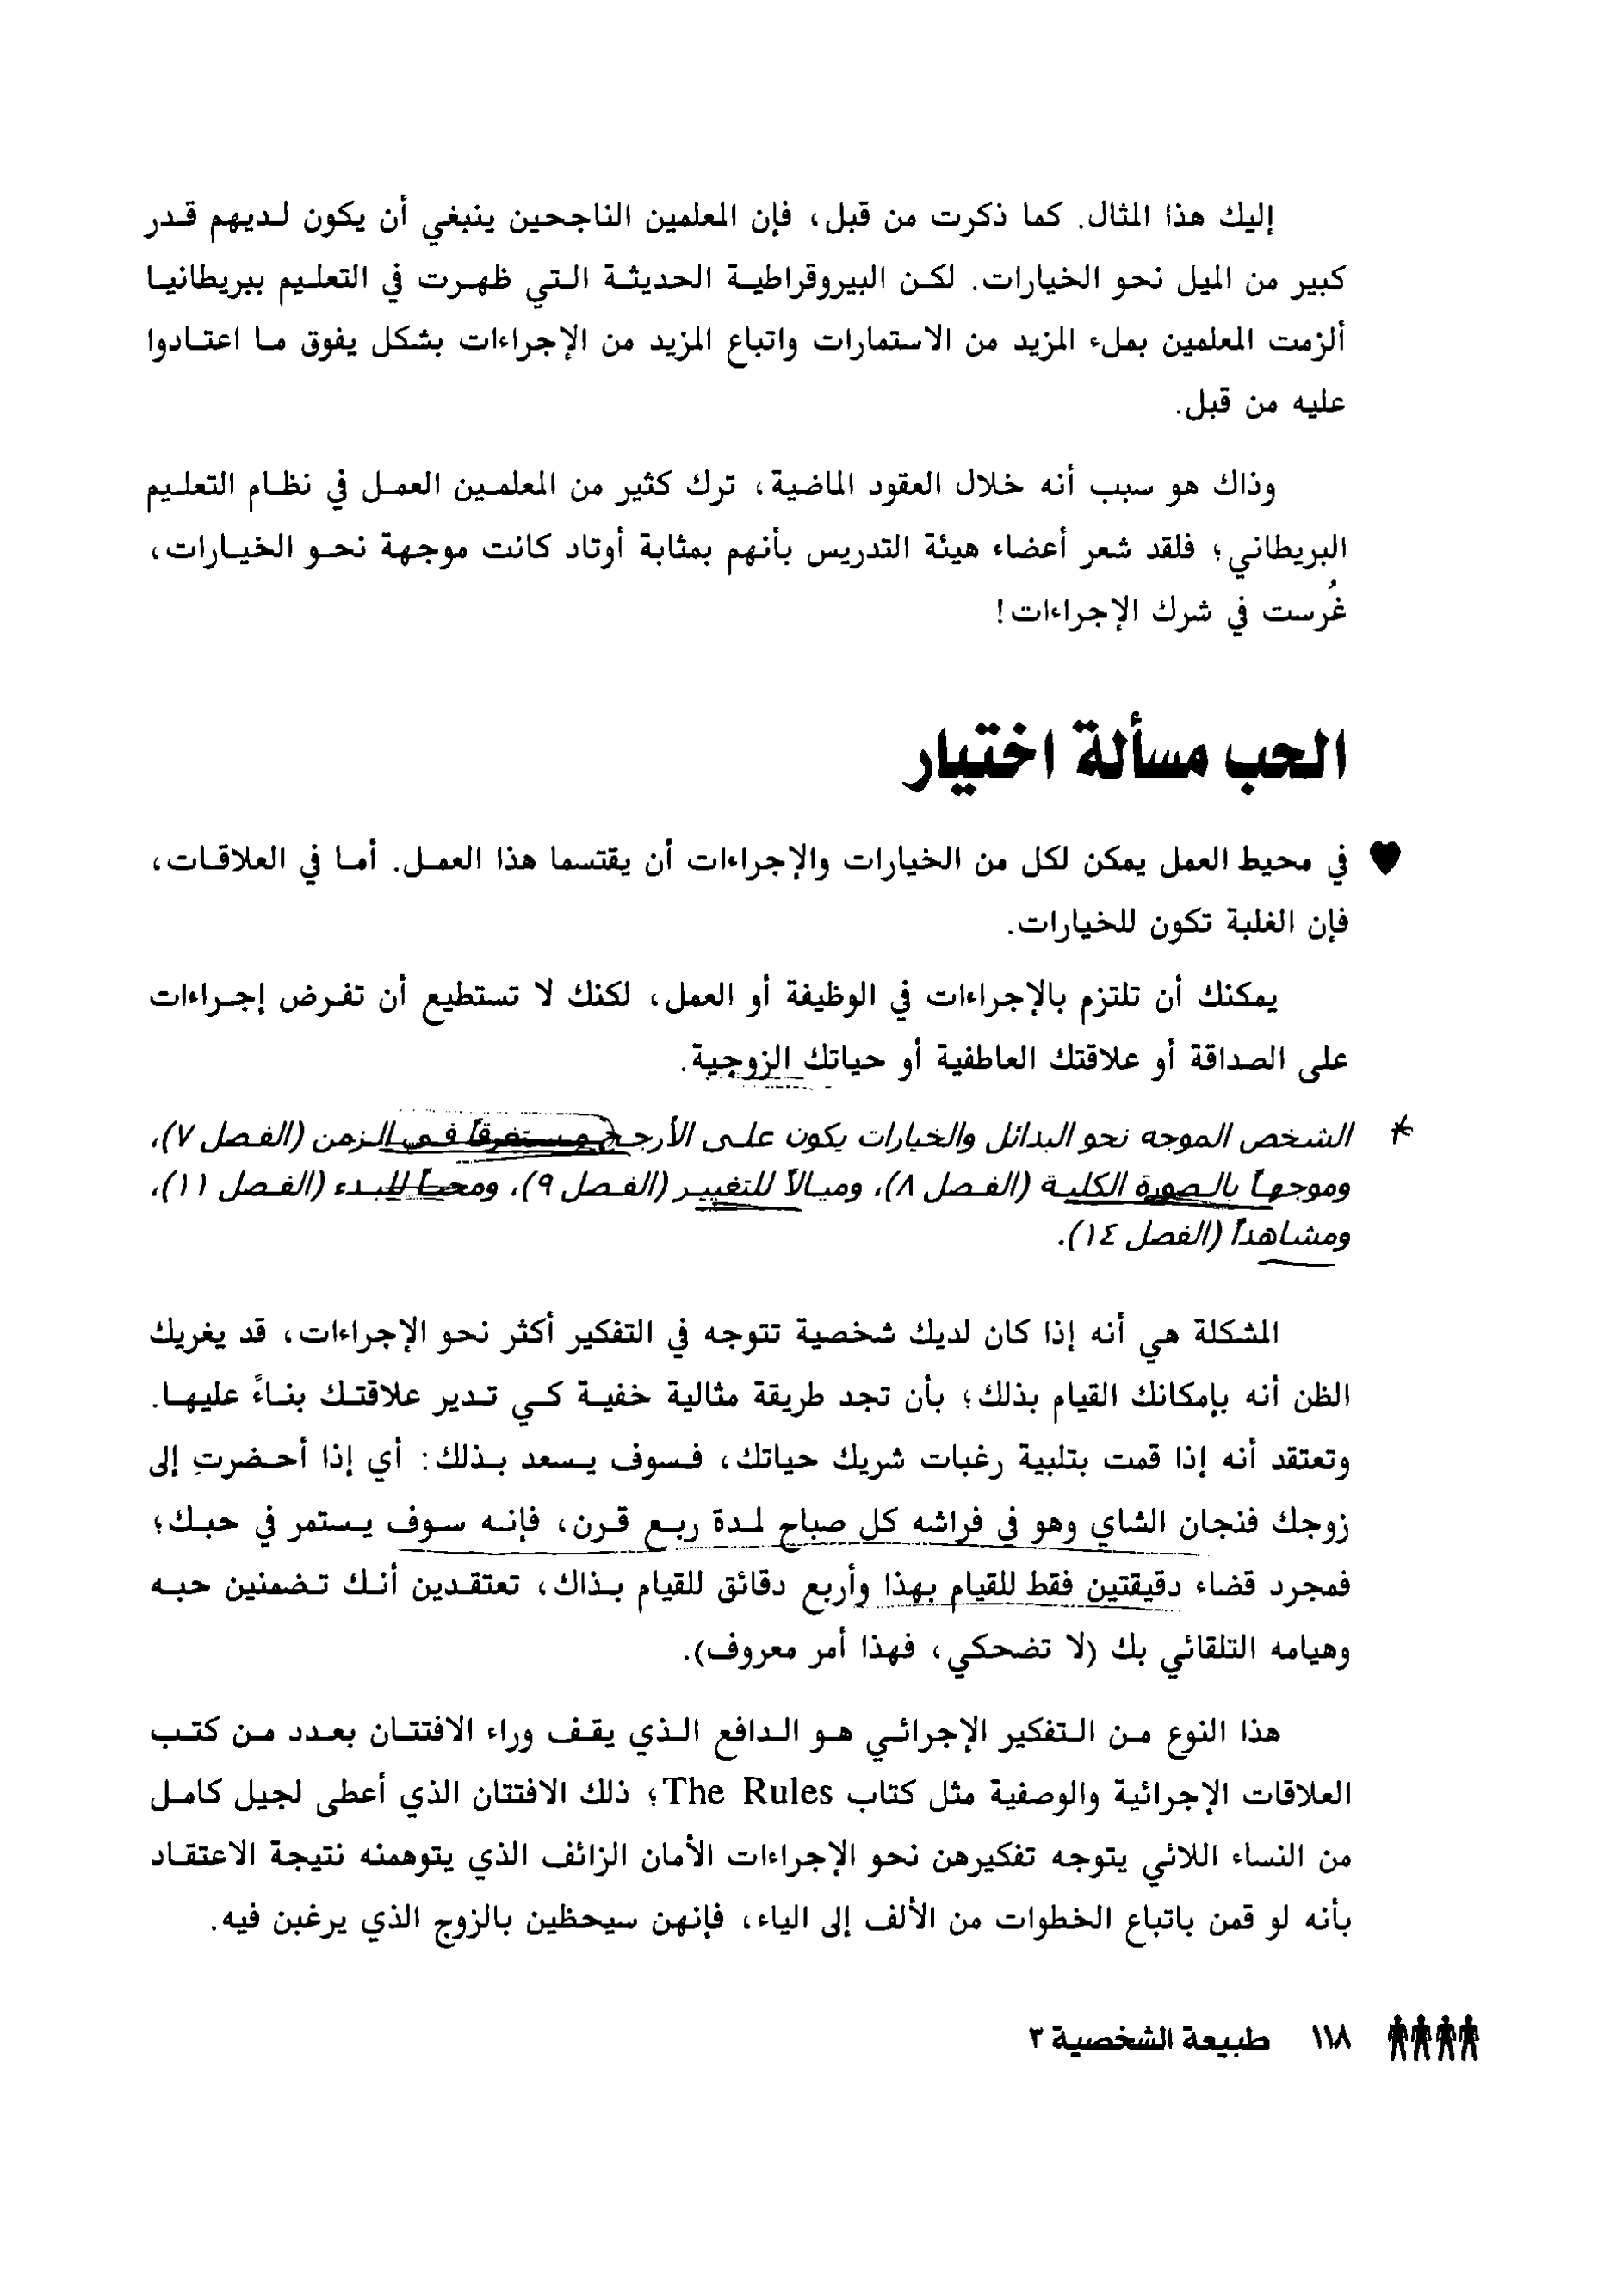 إليك هذا المثال. كما ذكرت من قبل، فإن المعلمين الناجحين ينبغي أن يكون لديهم قدر
كبير من الميل نحو الخيارات. لكن البيروقراطية الحديثة التي ظهرت في التعليم ببريطانيا
ألزمت المعلمين بملء المزيد من الاستمارات واتباع المزيد من الإجراءات بشكل يفوق ما اعتادوا
عليه من قبل.
وذاك هو سبب أنه خلال العقود الماضية، ترك كثير من المعلمين العمل في نظام التعليم
البريطاني؛ فلقد شعر أعضاء هيئة التدريس بأنهم بمثابة أوتاد كانت موجهة نحو الخيارات،
غُرست في شرك الإجراءات!
الحب مسألة اختيار
في محيط العمل يمكن لكل من الخيارات والإجراءات أن يقتسما هذا العمل. أما في العلاقات،
فإن الغلبة تكون للخيارات.
يمكنك أن تلتزم بالإجراءات في الوظيفة أو العمل، لكنك لا تستطيع أن تفرض إجراءات
على الصداقة أو علاقتك العاطفية أو حياتك الزوجية.
الشخص الموجه نحو البدائل والخيارات يكون على الأرجح مستغرقاً في الزمن (الفصل ٧)،
وموجهاً بالصورة الكلية (الفصل ٨)، وميالاً للتغيير (الفصل ٩)، ومحباً للبدء (الفصل ١١)،
ومشاهداً (الفصل ١٤).
المشكلة هي أنه إذا كان لديك شخصية تتوجه في التفكير أكثر نحو الإجراءات، قد يغريك
الظن أنه بإمكانك القيام بذلك؛ بأن تجد طريقة مثالية خفية كي تدير علاقتك بناءً عليها.
وتعتقد أنه إذا قمت بتلبية رغبات شريك حياتك، فسوف يسعد بذلك: أي إذا أحضرتِ إلى
زوجك فنجان الشاي وهو في فراشه كل صباح لمدة ربع قرن، فإنه سوف يستمر في حبك؛
فمجرد قضاء دقيقتين فقط للقيام بهذا وأربع دقائق للقيام بذاك، تعتقدين أنك تضمنين حبه
وهيامه التلقائي بك (لا تضحكي، فهذا أمر معروف).
هذا النوع من التفكير الإجرائي هو الدافع الذي يقف وراء الافتتان بعدد من كتب
العلاقات الإجرائية والوصفية مثل كتاب The Rules؛ ذلك الافتتان الذي أعطى لجيل كامل
من النساء اللائي يتوجه تفكيرهن نحو الإجراءات الأمان الزائف الذي يتوهمنه نتيجة الاعتقاد
بأنه لو قمن باتباع الخطوات من الألف إلى الياء، فإنهن سيحظين بالزوج الذي يرغبن فيه.
١١٨ طبيعة الشخصية ٣